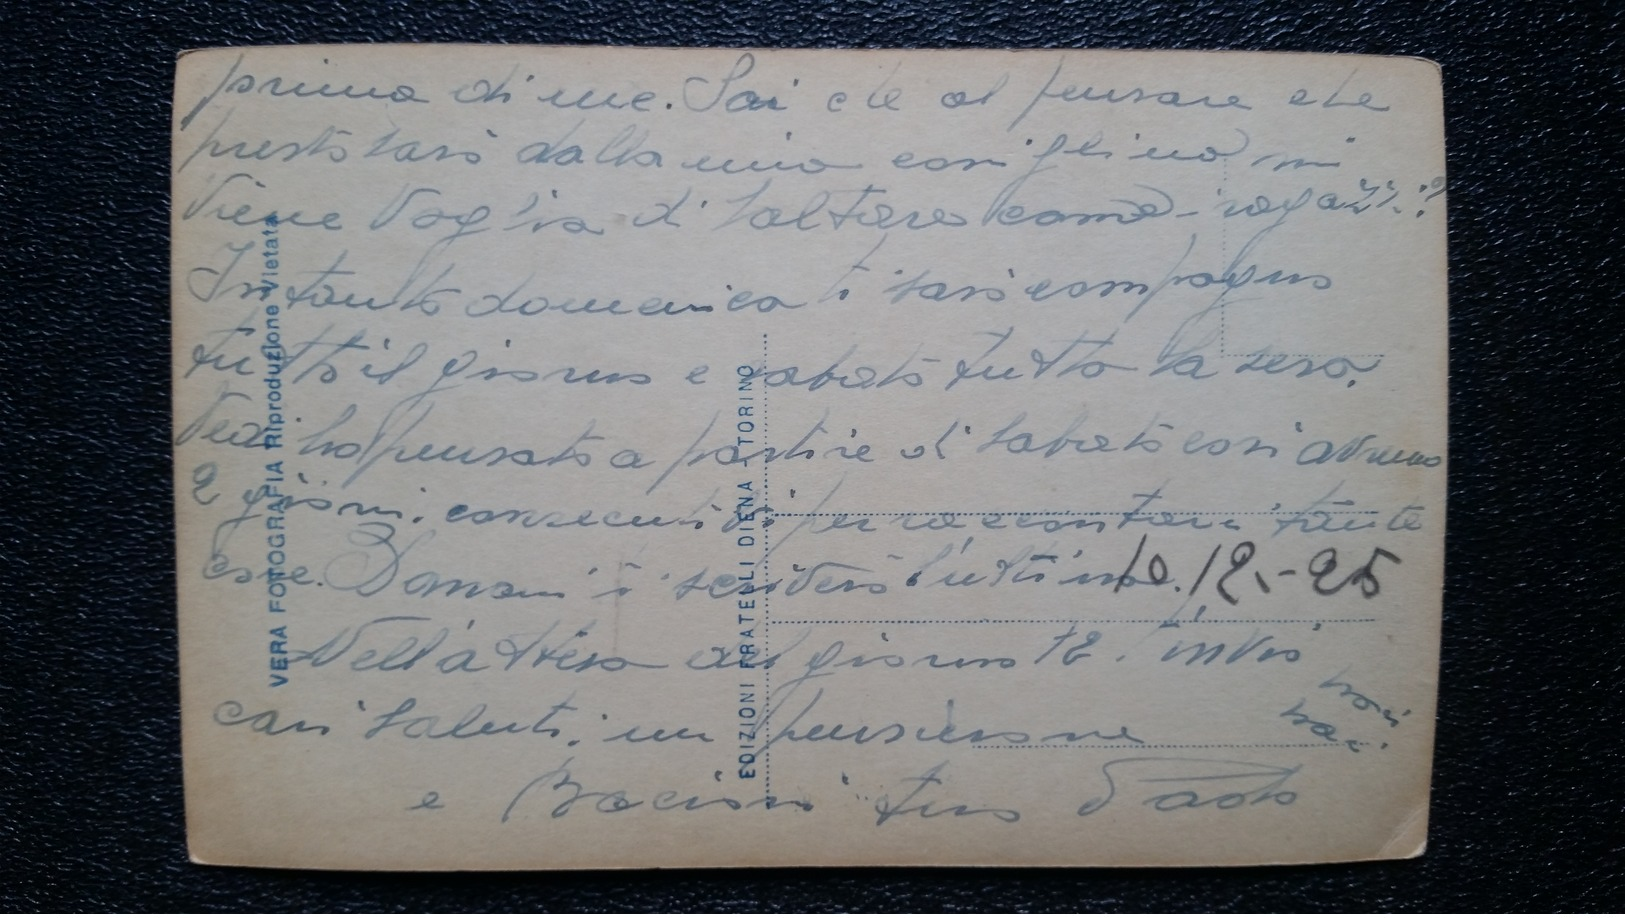 prima di me. Sai che al pensare che
presto sarò dalla mia conigliina mi
viene voglia di saltare come i ragazzi!
Intanto domenica ti sarò compagno
tutto il giorno e sabato tutta la sera.
Vedi ho pensato a partire di sabato così avremo
2 giorni consecutivi per raccontarci tante
cose. Domani ti scriverò l'ultima.
10.12.-25
Nell'attesa del giorno 12. t'invio
cari saluti, un pensierone
e Bacioni tuo Paolo
VERA FOTOGRAFIA Riproduzione Vietata
EDIZIONI FRATELLI DIENA - TORINO